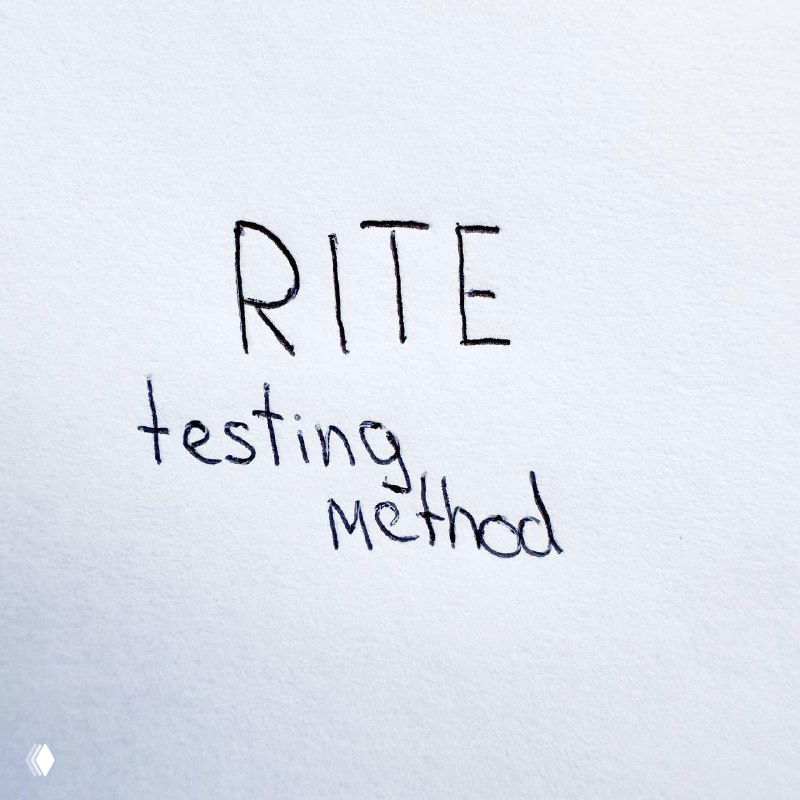 RITE
testing
Method